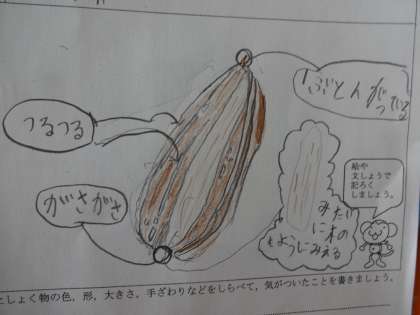 とんが
つるつる
がさがさ
みたい
に木の
もようにみえる
絵や
文しょうで
記ろく
しましょう。
としょく物の色，形，大きさ，手ざわりなどをしらべて，気がついたことを書きましょう。